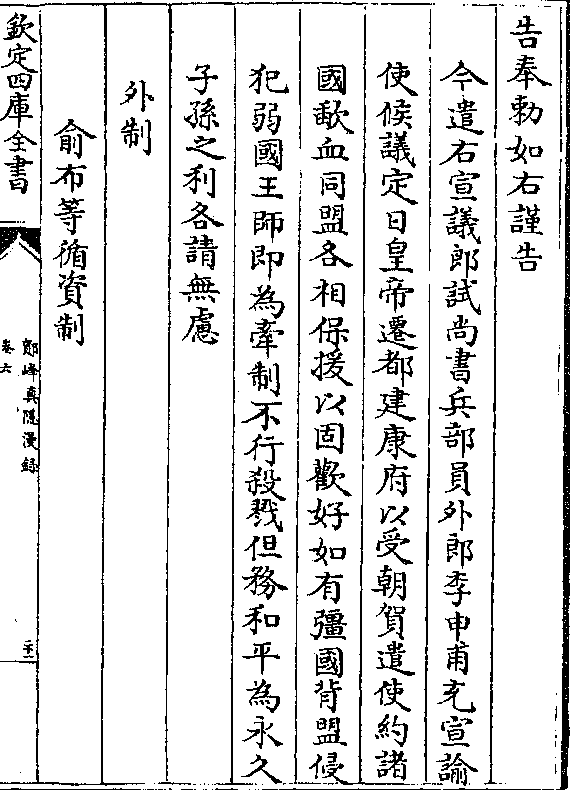 告奉勅如右謹告
今遣右宣議郎試尚書兵部員外郎李申甫充宣諭
使候議定日皇帝遷都建康府以受朝賀遣使約諸
國歃血同盟各相保援以固歡好如有彊國背盟侵
犯弱國王師即為牽制不行殺戮但務和平為永久
子孫之利各請無慮
外制
俞布等循資制
欽定四庫全書
鄮峰真隱漫錄
卷六
二十二